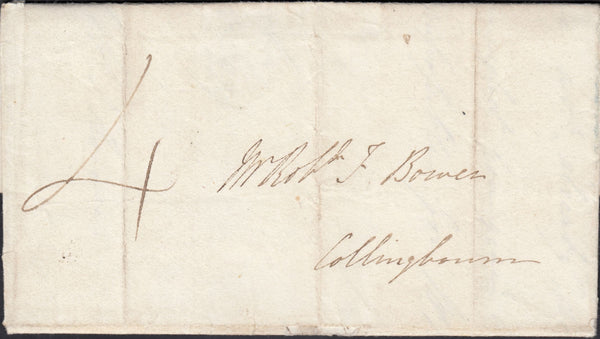 4
Mr Robt. F. Bower
Collingbourn